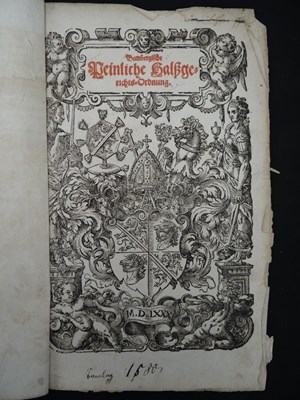 Bambergische
Peinliche Halßge-
richts-Ordnung.
M.D.LXXX
1580